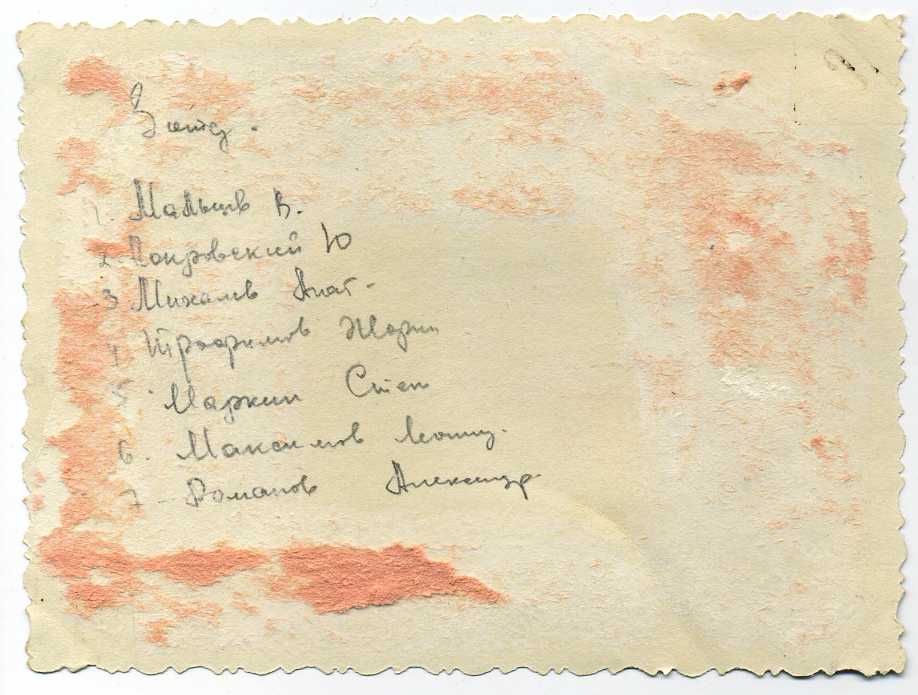 1. Мальцев В.
2. Покровский Ю
3 Михалев Анат.
4 Трофимов Жорж
5 Маркин Степ
6. Максимов Леонид.
7 Романов Александр.